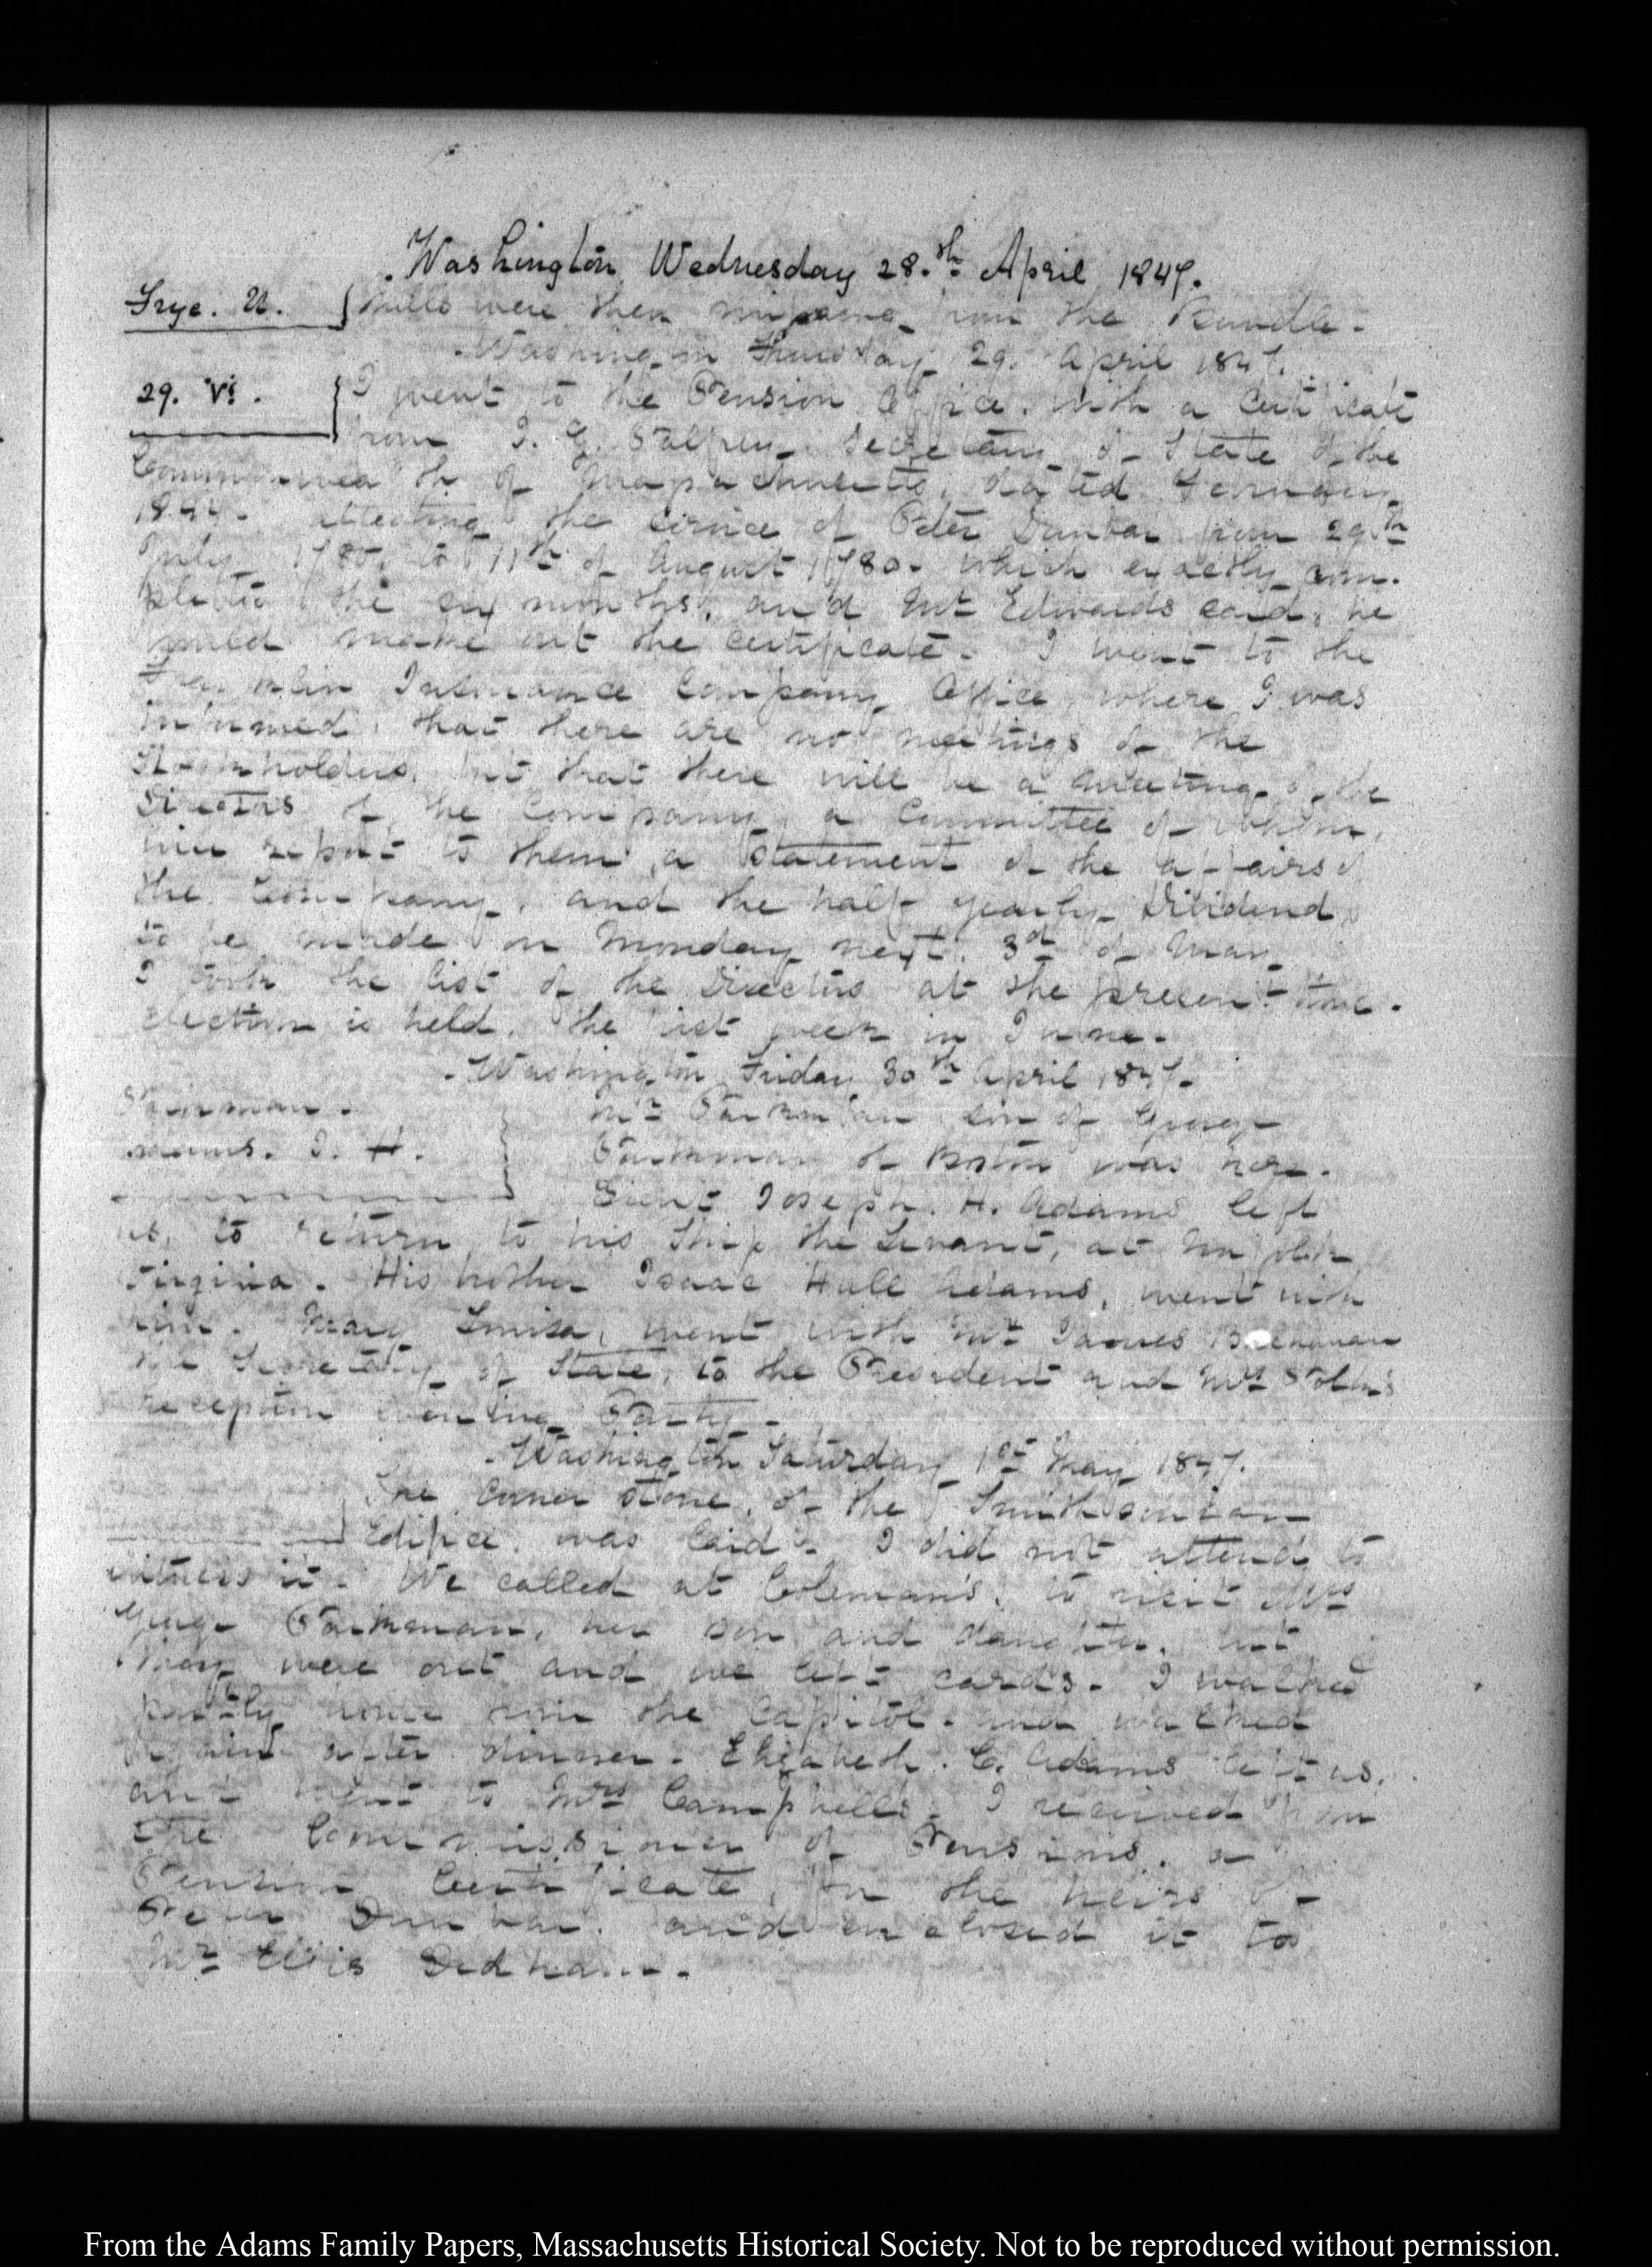 Washington Wednesday 28.th April 1847.
Frye. N.
were then missing from the Bundle.
Washington Thursday 29. April 1847.
29. VI.
I went to the Pension Office, with a Certificate
from J. G. Palfrey Secretary of State of the
Commonwealth of Massachusetts, dated
attesting the service of Peter Dunbar from 29th
July 1780. to 11th of August 1780. which exactly com-
pletes the six months, and Mr Edwards said, he
would make out the certificate. I went to the
Franklin Insurance Company Office, where I was
informed, that there are no meetings of the
Stockholders, but that there will be a meeting of the
Directors of the Company, a Committee of whom,
will report to them, a statement of the affairs of
the Company, and the half yearly Dividend
to be made on Monday next. 3d of May
I took the list of the Directors at the present time.
Election is held, the first week in June.
Washington Friday 30th April 1847.
Parkman.
Adams. J. H.
Mr Parkman son of George
Parkman of Boston was here.
Lieut Joseph. H. Adams left
us, to return to his Ship the Levant, at Norfolk
Virginia. His brother Isaac Hull Adams, went with
him. Mary Louisa, went with Mr James Buchanan
the Secretary of State, to the President and Mrs Polk's
reception evening Party.
Washington Saturday 1st May 1847.
The Corner stone, of the Smithsonian
Edifice, was laid. I did not attend to
witness it. We called at Coleman's, to visit Mrs
George Parkman, her son and daughter, but
they were out and we left cards. I walked
partly home from the Capitol. and walked
again after dinner. Elizabeth. C. Adams left us,
and went to Mrs Campbell's. I received from
the Commissioner of Pensions, a
Pension Certificate, for the heirs of
Peter Dunbar. and enclosed it to
Mr Ellis Dedham.
From the Adams Family Papers, Massachusetts Historical Society. Not to be reproduced without permission.